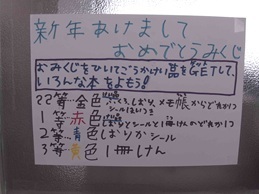 新年あけまして
おめでとうみくじ
おみくじをひいてごうかけい品をGETして、
いろんな本をよもう!
22等…金色 しおり、メモ帳からどれか1つ
1等 赤色
2等…青色 しおりかシール
3等 黄色 1冊けん